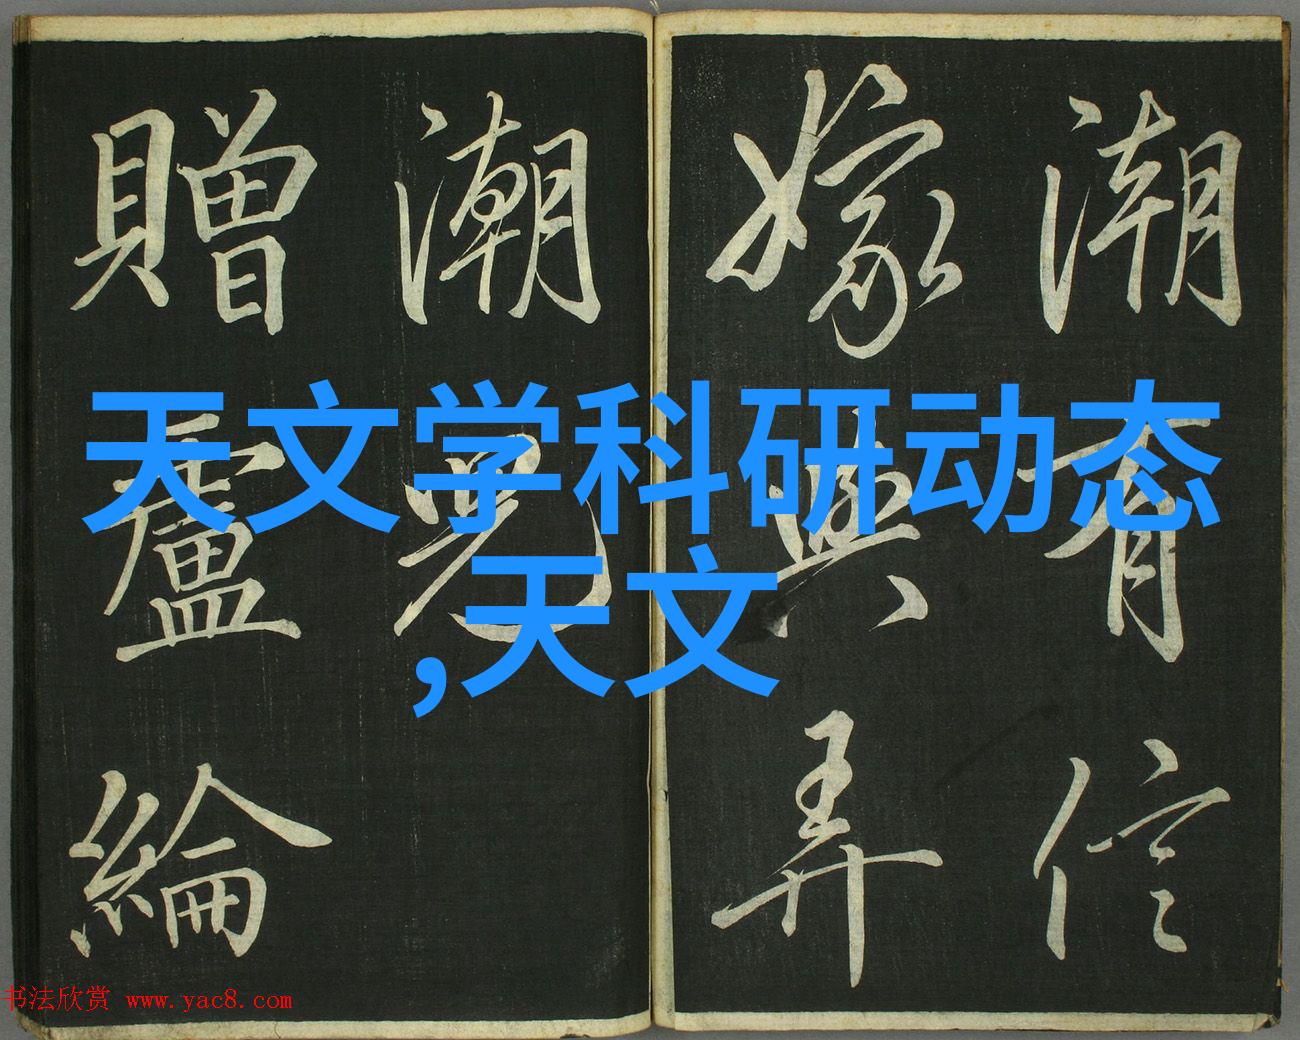 潮有信
嫁與弄
潮兒
贈盧綸
天文学科研动态
,天文
书法欣赏 www.yac8.com